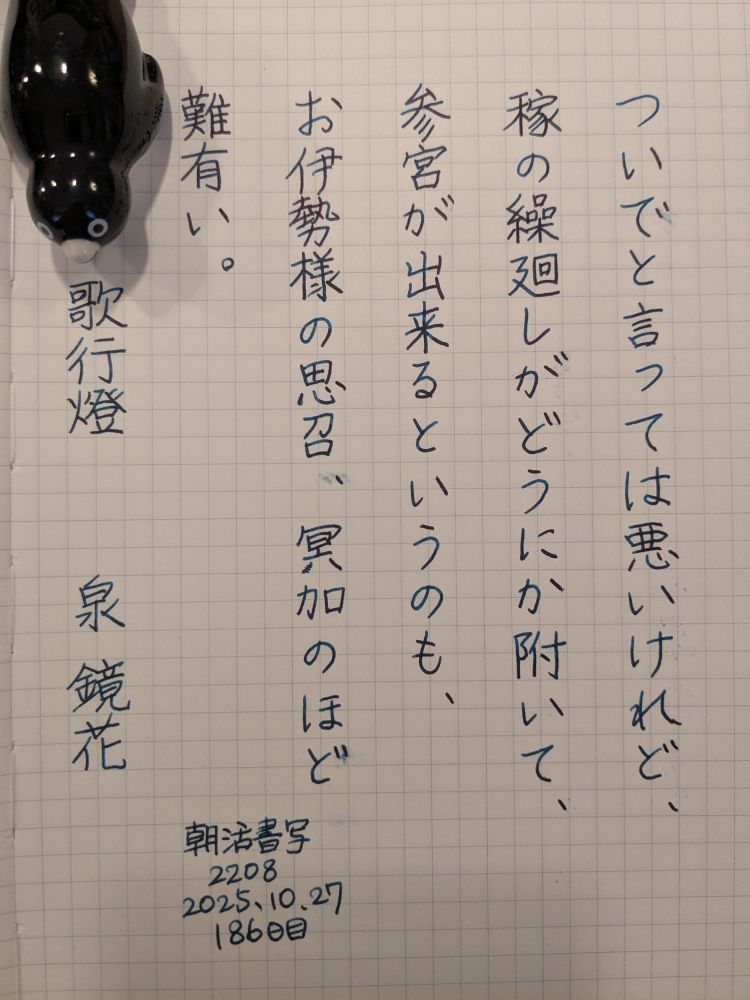 ついでと言っては悪いけれど、
稼の繰廻しがどうにか附いて、
参宮が出来るというのも、
お伊勢様の思召、冥加のほど
難有い。
歌行燈 泉 鏡花
朝活書写
2208
2025.10.27
186日目